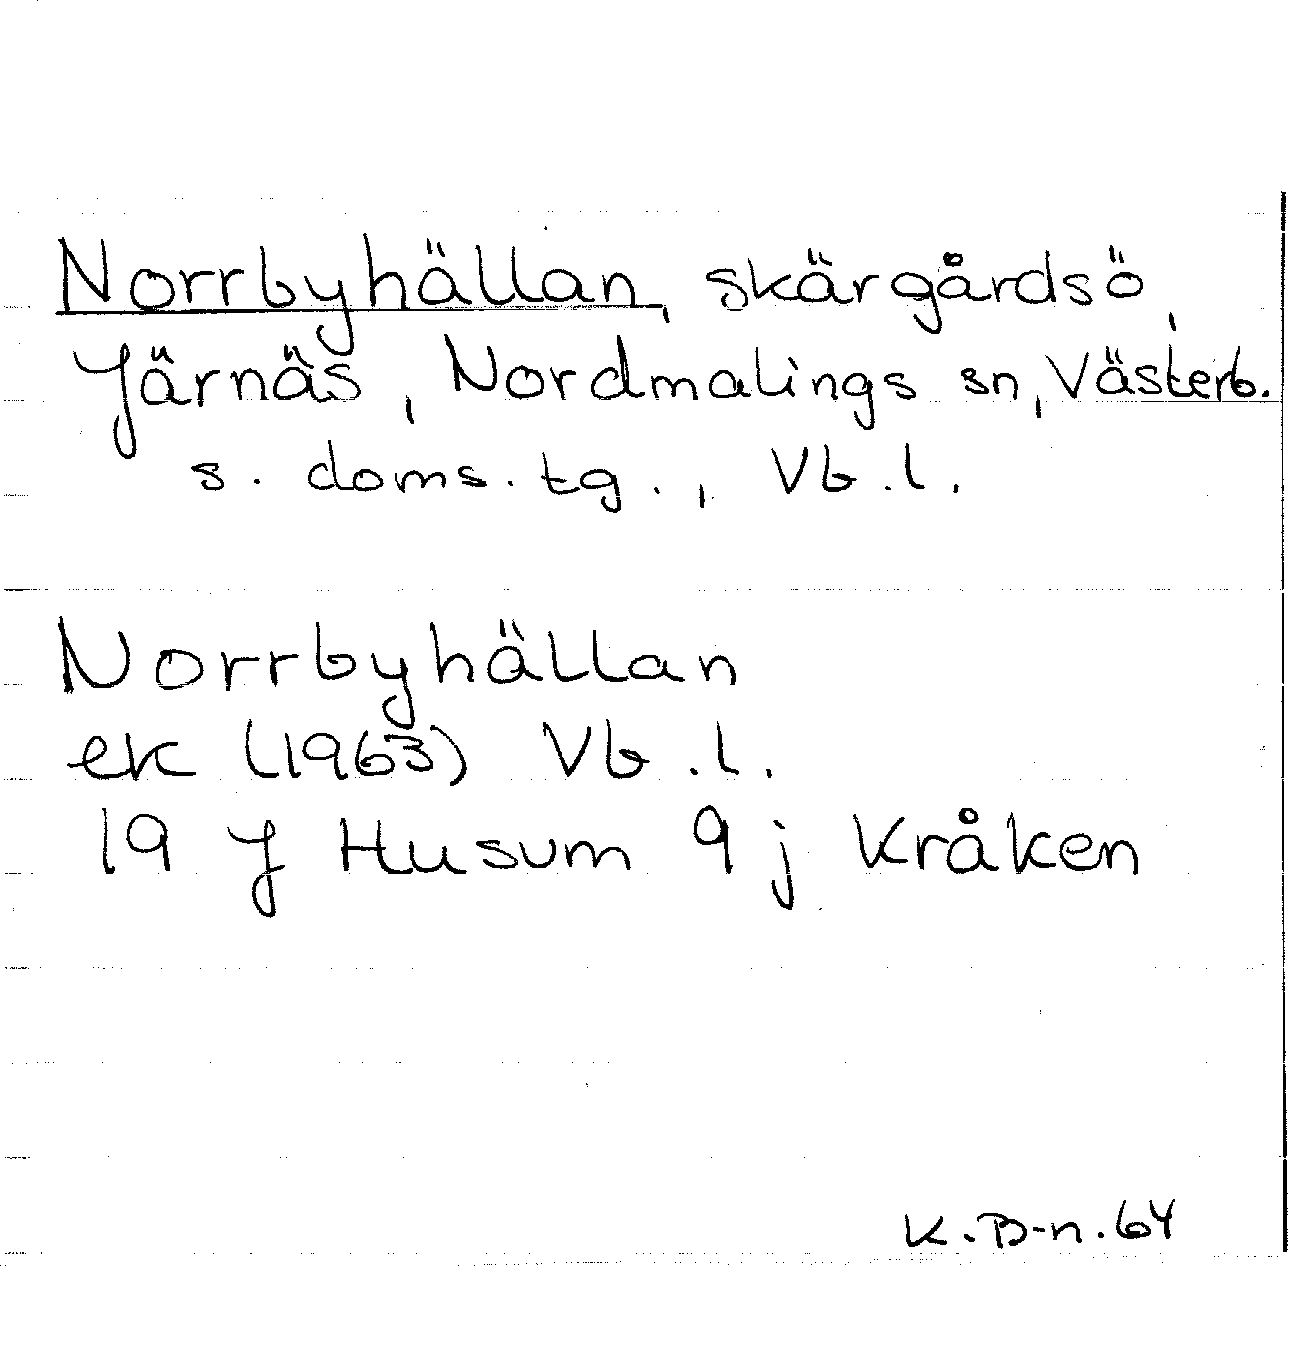 Norrbyhällan, skärgårdsö,
Järnäs, Nordmalings sn, Västerb.
s. doms. tg., Vb. l.
Norrbyhällan
ek (1963) Vb. l.
19 J Husum 9 j Kråken
K. B-n. 64